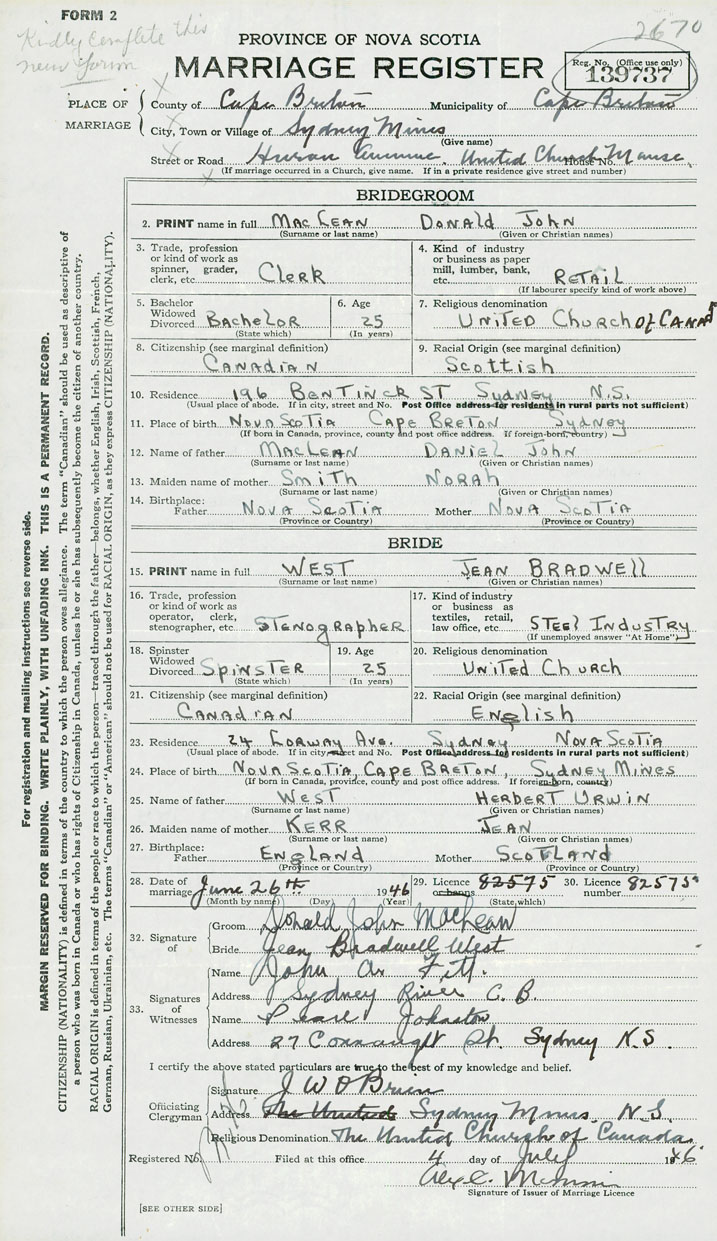 FORM 2
Kindly complete this
new form
2670
PROVINCE OF NOVA SCOTIA
MARRIAGE REGISTER
Reg. No. (Office use only)
139737
PLACE OF MARRIAGE
County of Cape Breton Municipality of Cape Breton
City, Town or Village of Sydney Mines
(Give name)
Street or Road Huron Avenue, United Church Manse House No.
(If marriage occurred in a Church, give name. If in a private residence give street and number)
BRIDEGROOM
2. PRINT name in full MacLean Donald John
(Surname or last name) (Given or Christian names)
3. Trade, profession or kind of work as spinner, grader, clerk, etc. Clerk
4. Kind of industry or business as paper mill, lumber, bank, etc. Retail
(If labourer specify kind of work above)
5. Bachelor Widowed Divorced Bachelor
(State which)
6. Age 25
(In years)
7. Religious denomination United Church of Canada
8. Citizenship (see marginal definition) Canadian
9. Racial Origin (see marginal definition) Scottish
10. Residence 196 Bentinck St Sydney N.S.
(Usual place of abode. If in city, street and No. Post Office address for residents in rural parts not sufficient)
11. Place of birth Nova Scotia Cape Breton Sydney
(If born in Canada, province, county and post office address. If foreign-born, country)
12. Name of father MacLean Daniel John
(Surname or last name) (Given or Christian names)
13. Maiden name of mother Smith Norah
(Surname or last name) (Given or Christian names)
14. Birthplace: Father Nova Scotia Mother Nova Scotia
(Province or Country) (Province or Country)
BRIDE
15. PRINT name in full West Jean Bradwell
(Surname or last name) (Given or Christian names)
16. Trade, profession or kind of work as operator, clerk, stenographer, etc. Stenographer
17. Kind of industry or business as textiles, retail, law office, etc. Steel Industry
(If unemployed answer "At Home")
18. Spinster Widowed Divorced Spinster
(State which)
19. Age 25
(In years)
20. Religious denomination United Church
21. Citizenship (see marginal definition) Canadian
22. Racial Origin (see marginal definition) English
23. Residence 24 Lorway Ave. Sydney Nova Scotia
(Usual place of abode. If in city, street and No. Post Office address for residents in rural parts not sufficient)
24. Place of birth Nova Scotia, Cape Breton, Sydney Mines
(If born in Canada, province, county and post office address. If foreign-born, country)
25. Name of father West Herbert Urwin
(Surname or last name) (Given or Christian names)
26. Maiden name of mother Kerr Jean
(Surname or last name) (Given or Christian names)
27. Birthplace: Father England Mother Scotland
(Province or Country) (Province or Country)
28. Date of marriage June 26th 1946
(Month by name) (Day) (Year)
29. Licence or banns 82575
(State which)
30. Licence number 82575
32. Signature of
Groom Donald John MacLean
Bride Jean Bradwell West
33. Signatures of Witnesses
Name John A. Fitt.
Address Sydney River C. B.
Name Pearl Johnston
Address 27 Connaught St. Sydney N.S.
I certify the above stated particulars are true to the best of my knowledge and belief.
Officiating Clergyman
Signature J W O'Brien
Address The United Sydney Mines N.S
Religious Denomination The United Church of Canada
Registered No. Filed at this office 4 day of July 1946
Signature of Issuer of Marriage Licence
[SEE OTHER SIDE]
For registration and mailing instructions see reverse side.
MARGIN RESERVED FOR BINDING. WRITE PLAINLY, WITH UNFADING INK. THIS IS A PERMANENT RECORD.
CITIZENSHIP (NATIONALITY) is defined in terms of the country to which the person owes allegiance. The term "Canadian" should be used as descriptive of
a person who was born in Canada or who has rights of Citizenship in Canada, unless he or she has subsequently become the citizen of another country.
RACIAL ORIGIN is defined in terms of the people or race to which the person—traced through the father—belongs, whether English, Irish, Scottish, French,
German, Russian, Ukrainian, etc. The terms "Canadian" or "American" should not be used for RACIAL ORIGIN, as they express CITIZENSHIP (NATIONALITY).